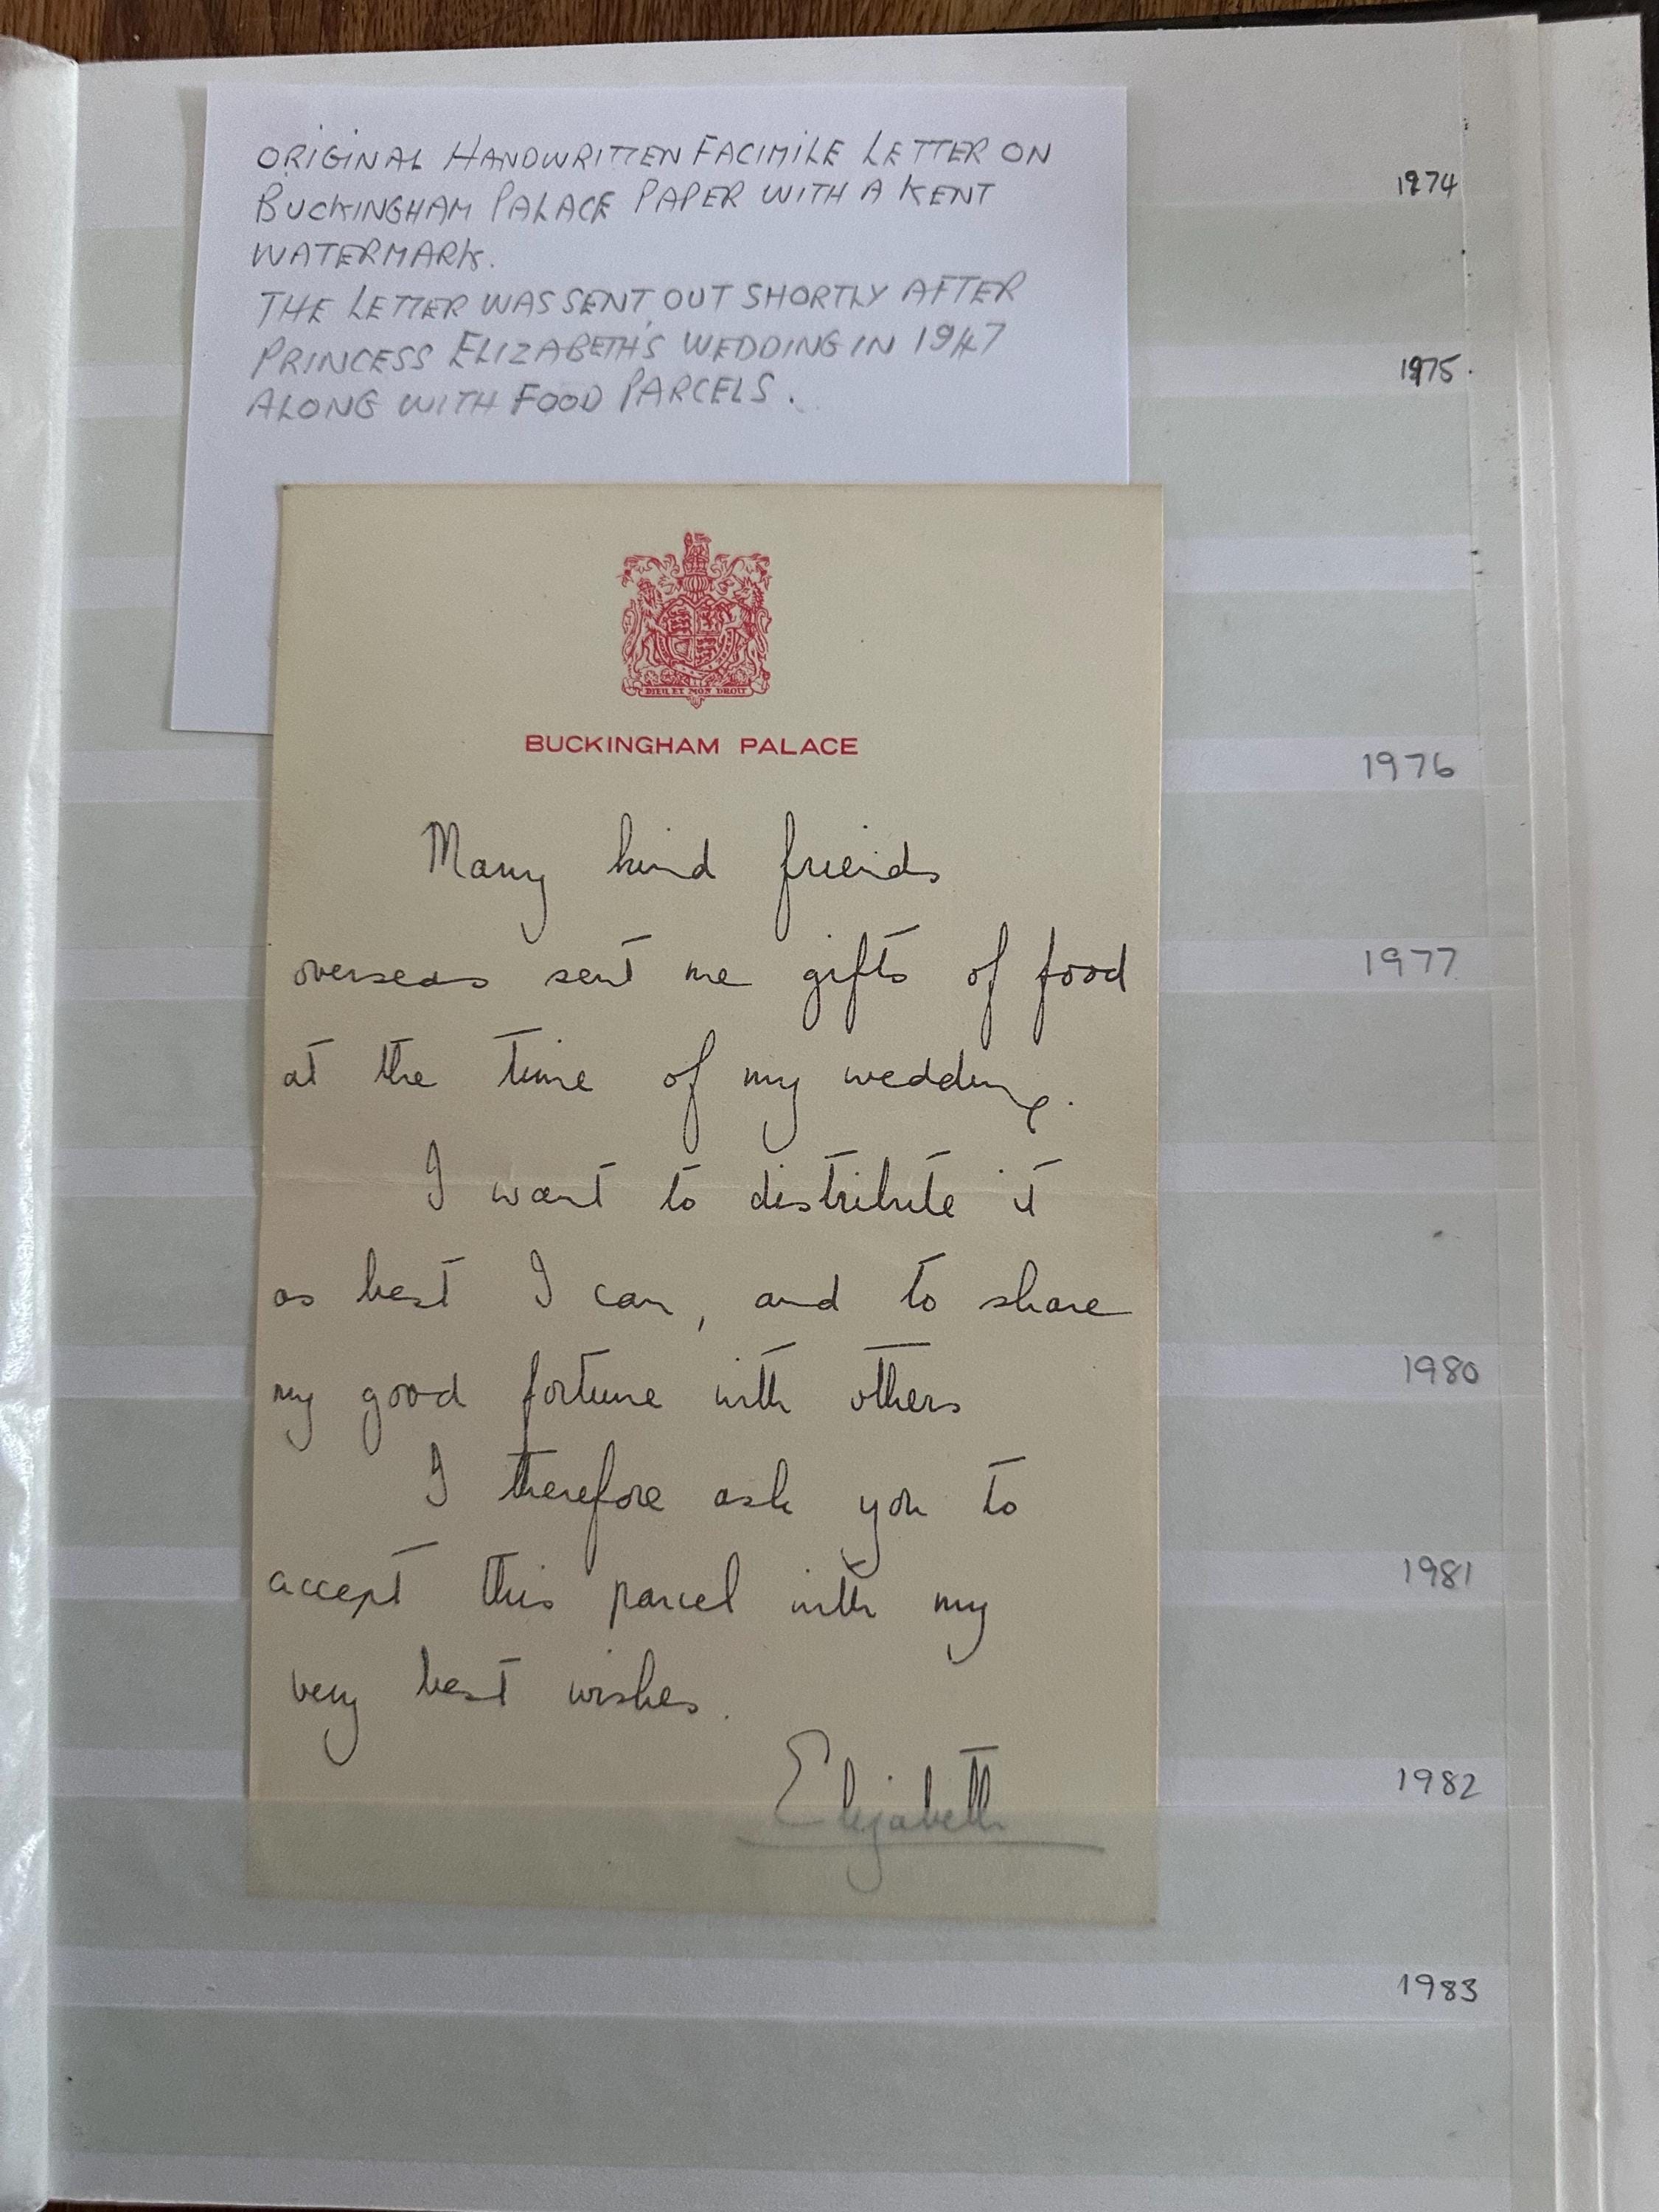 ORIGINAL HANDWRITTEN FACIMILE LETTER ON
BUCKINGHAM PALACE PAPER WITH A KENT
WATERMARK.
THE LETTER WAS SENT OUT SHORTLY AFTER
PRINCESS ELIZABETH'S WEDDING IN 1947
ALONG WITH FOOD PARCELS.
DIEU ET MON DROIT
BUCKINGHAM PALACE
Many kind friends
overseas sent me gifts of food
at the time of my wedding.
I want to distribute it
as best I can, and to share
my good fortune with others
I therefore ask you to
accept this parcel with my
very best wishes.
Elizabeth
1974
1975.
1976
1977
1980
1981
1982
1983